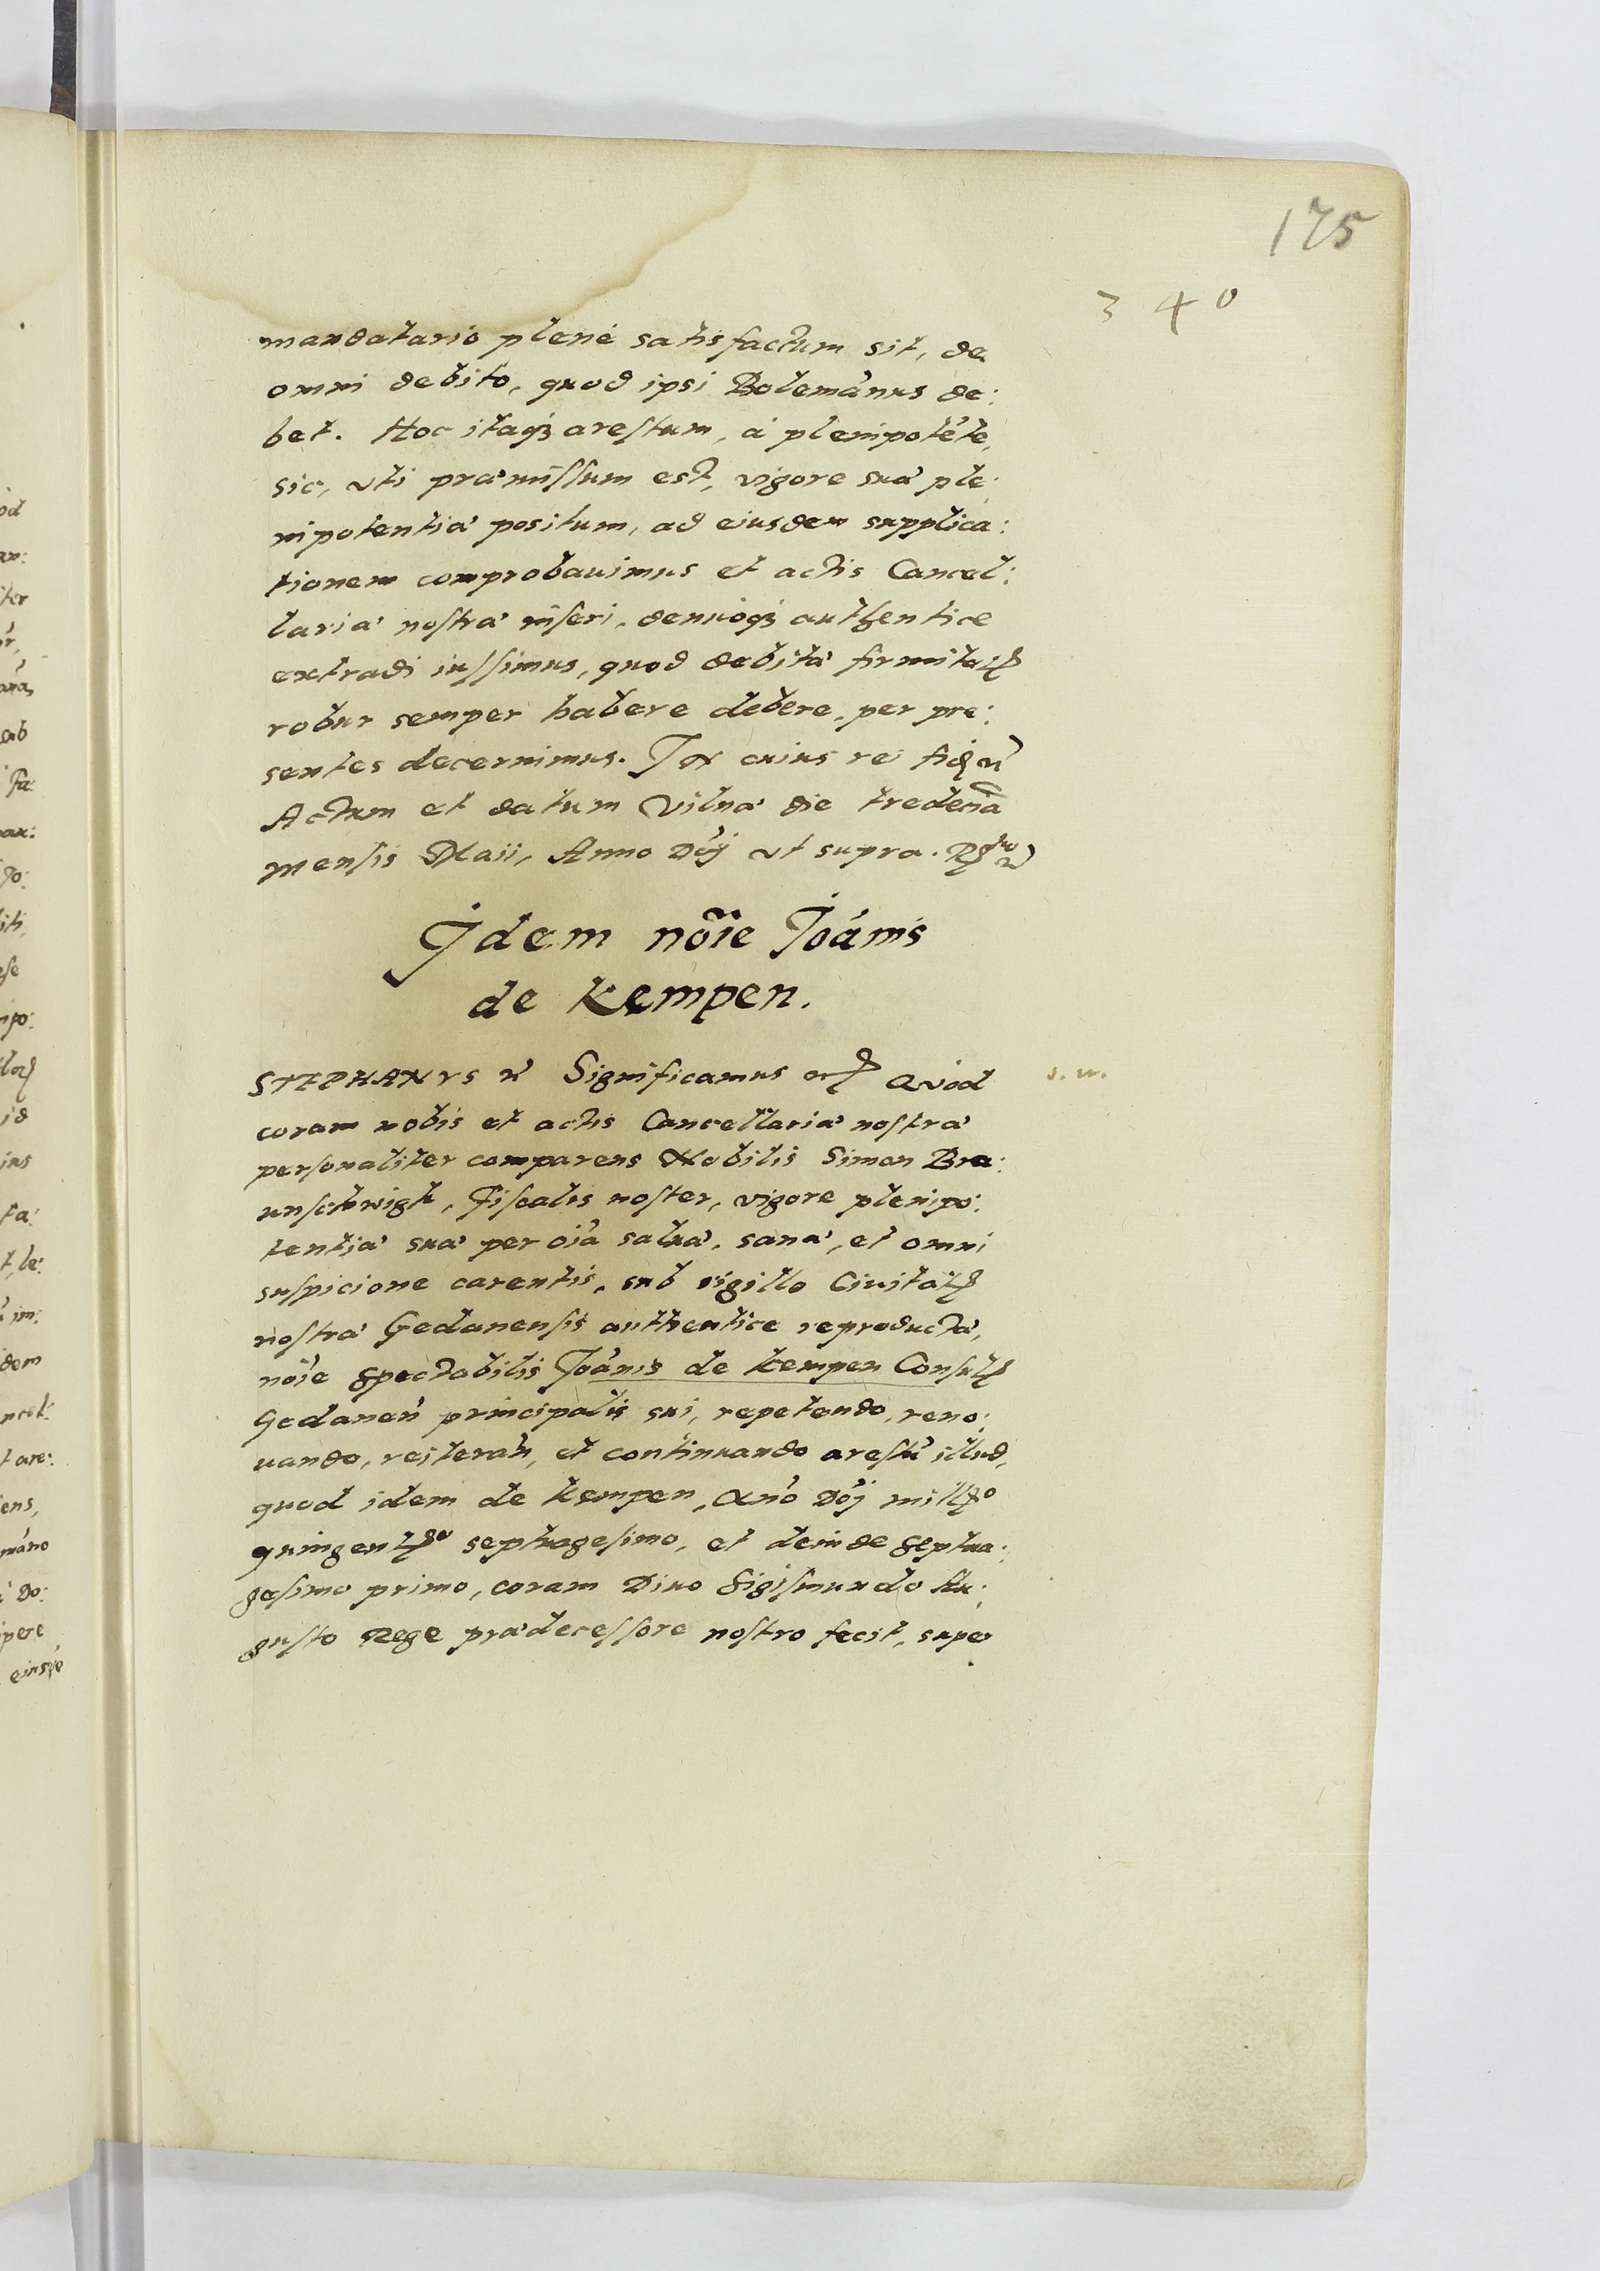 175
3 4 0
mandatario plenè satisfactum sit, de
omni debito, quod ipsi Bolemãnus de:
bet. Hoc itaq; arestum, à plenipotẽte,
sic, vti præmissum est, vigore suæ ple:
nipotentiæ positum, ad eiusdem supplica:
tionem comprobauimus et actis Cancel:
lariæ nostræ inseri, denuoq; authentice
extradi iussimus, quod debitæ firmitatꝭ
robur semper habere debere, per præ:
sentes decernimus. In cuius rei fidẽ
Actum et datum Vilnæ die tredecia
mensis Maii, Anno Dñj vt supra.
Idem nõie Joánis
de Kempen.
STEPHANVS Significamus Quod
coram nobis et actis Cancellariæ nostræ
personaliter comparens Nobilis Simon Bra:
unschwigk, Fiscalis noster, vigore plenipo:
tentiæ suæ per oĩa saluæ, sanæ, et omni
suspicione carentis, sub sigillo Ciuitatꝭ
nostræ Gedanensis authentice reproductæ,
nõie spectabilis Joãnis de Kempen Consulꝭ
Gedaneñ principalis sui, repetendo, reno:
uando, reiterañ, et continuando arestũ illud,
quod idem de Kempen, Añó Dñj millꝭo
quingentꝭo septuagesimo, et deinde septua:
gesimo primo, coram Diuo Sigismundo Au:
gusto Rege prædecessore nostro fecit, super